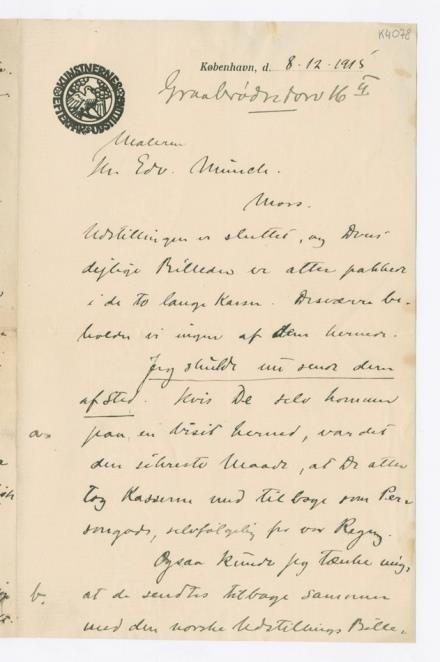 K4078
KUNSTNERNES EFTERAARSUDSTILLING
København, d. 8.12.1915
Graabrødretorv 16
Maleren
Hr. Edv. Munch.
Moss.
Udstillingen er sluttet, og Deres
dejlige Billeder er atter pakkede
i de to lange Kasser. Desværre be-
holder vi ingen af dem herned.
Jeg skulde nu sende dem
afsted. Hvis De selv kommer
a. paa en Visit herned, var det
den sikreste Maade, at De atter
tog Kasserne med tilbage som Per-
songods, selvfølgelig for vor Regng.
Ogsaa kunde jeg tænke mig,
b. at de sendtes tilbage sammen
med den norske Udstillings Bille-